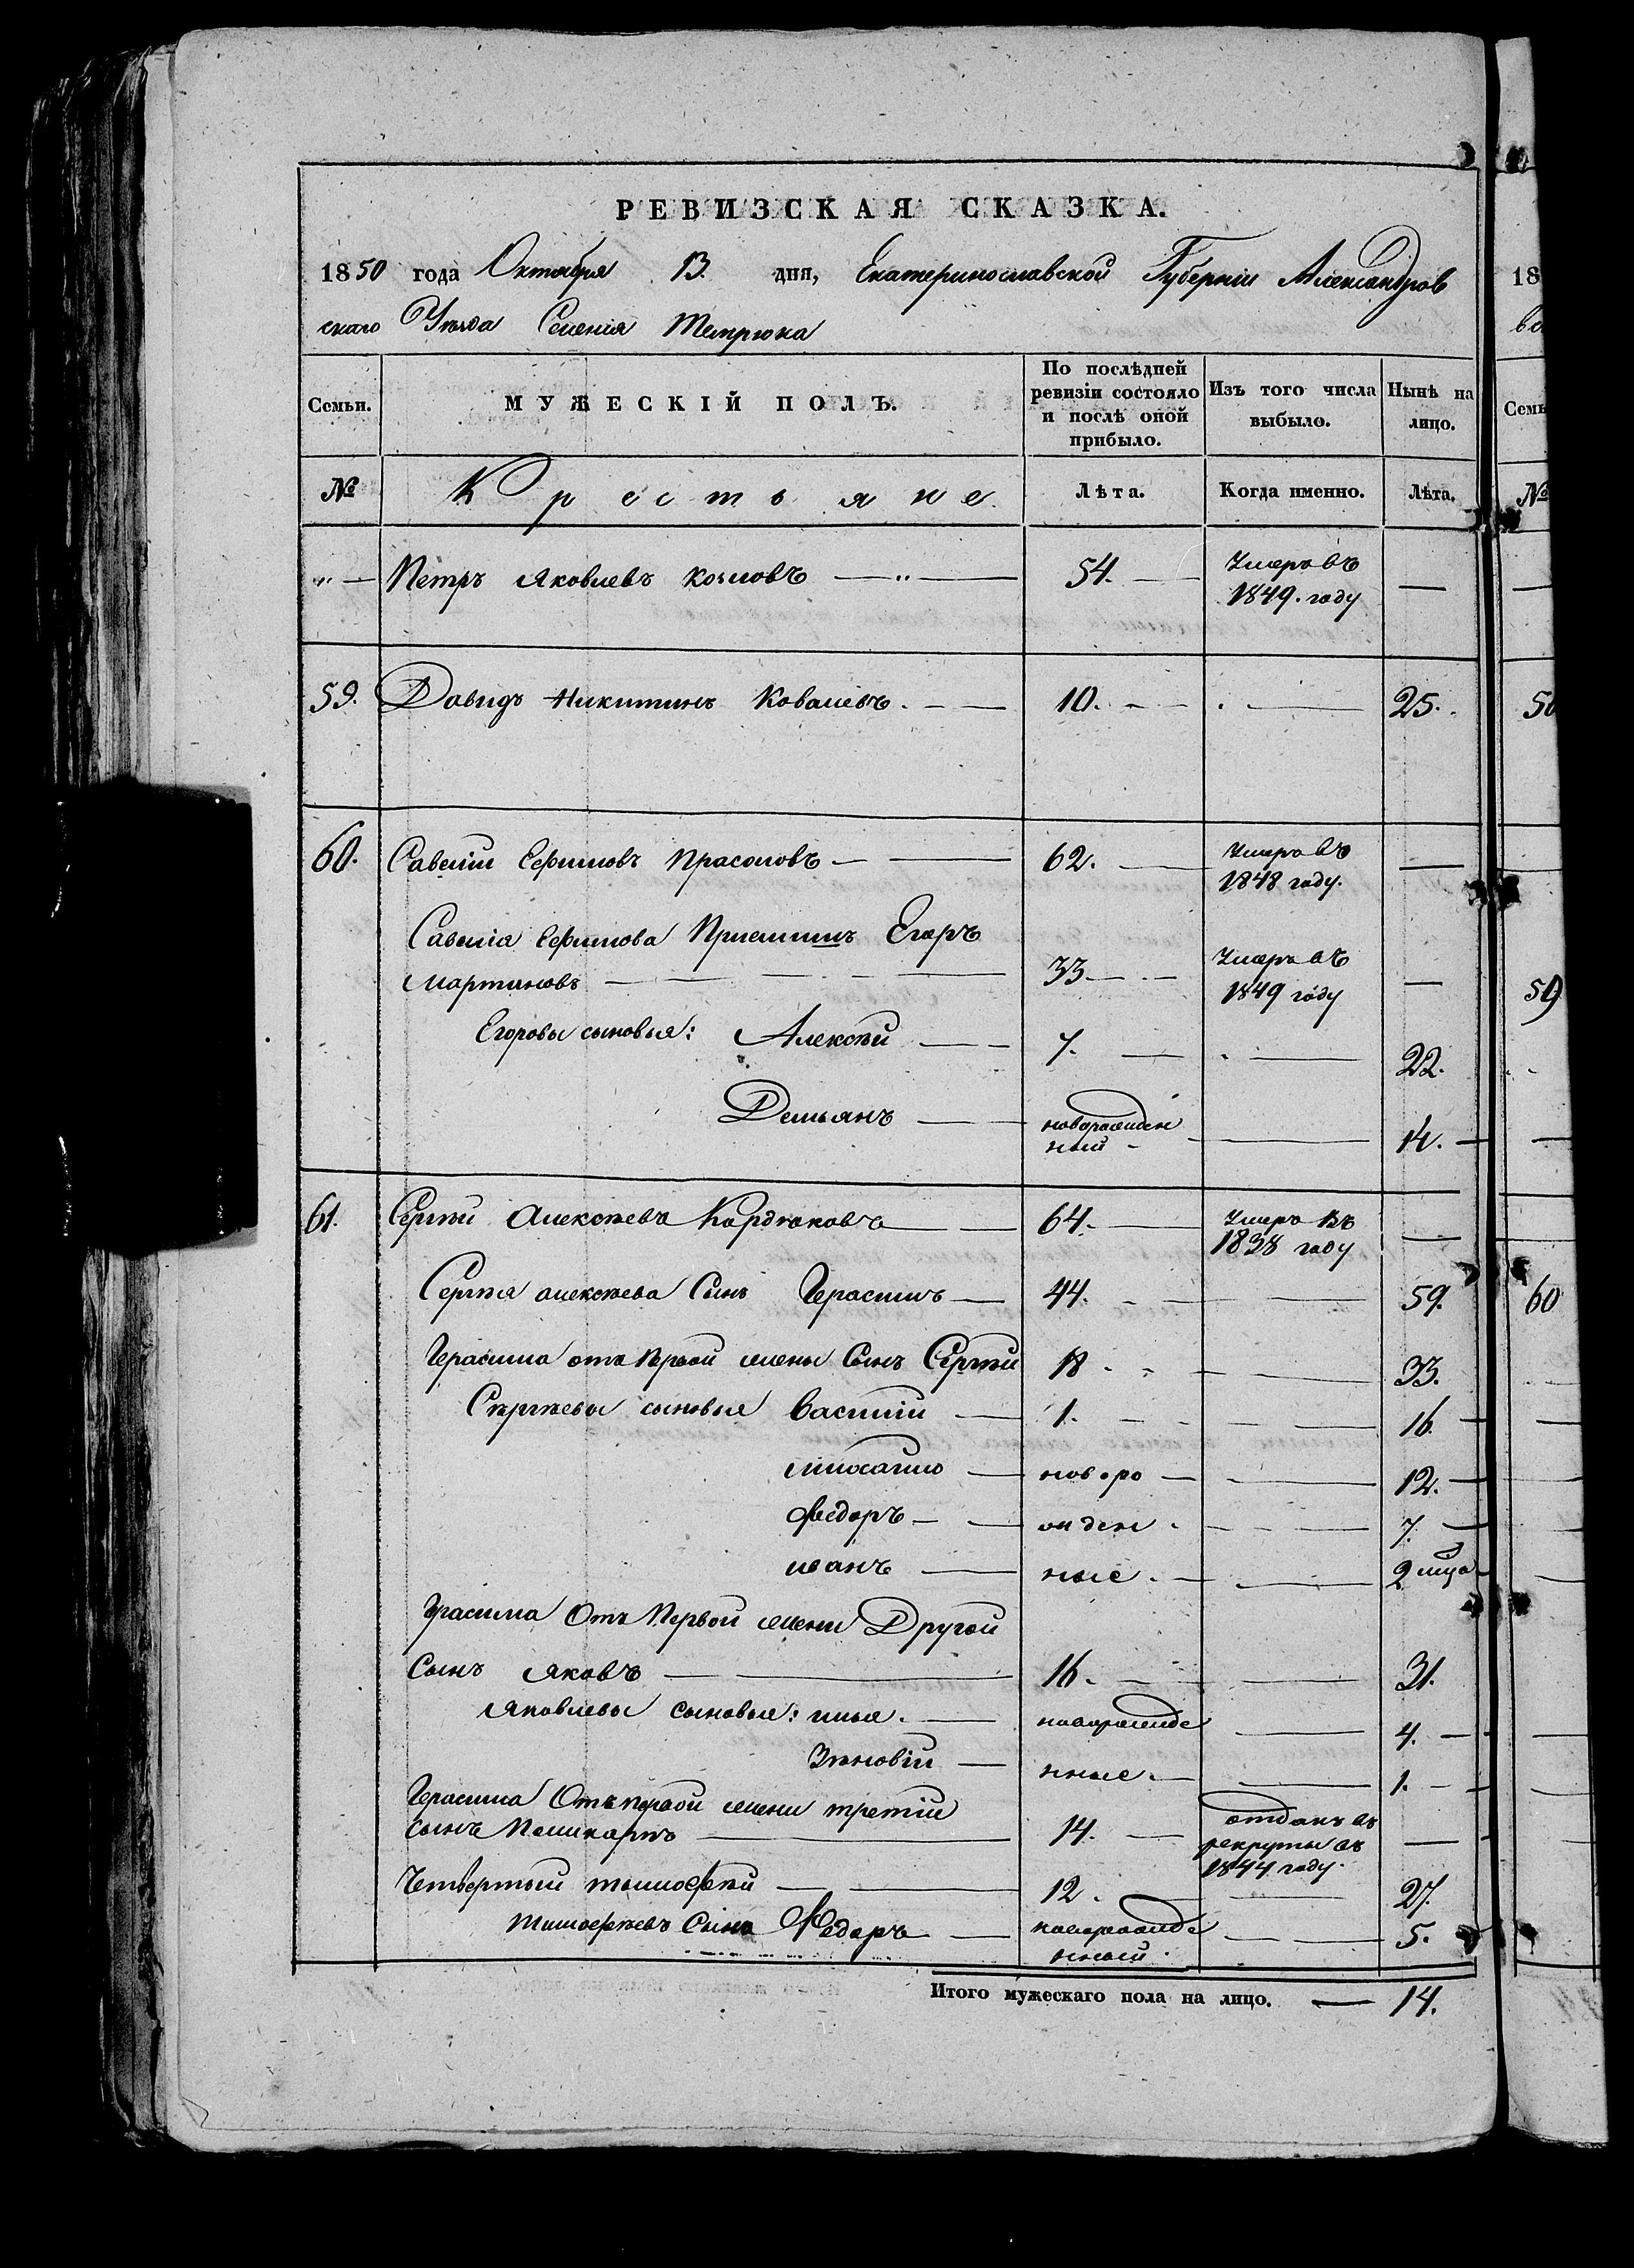 РЕВИЗСКАЯ СКАЗКА.
1850 года Октября 13. дня, Екатеринославской Губерніи Александров
скаго Уѣзда Селенія Темрюка
Семьи. МУЖЕСКІЙ ПОЛЪ. По послѣдней ревизіи состояло и послѣ оной прибыло. Изъ того числа выбыло. Нынѣ на лицо.
№ Крестьяне. Лѣта. Когда именно. Лѣта.
„ — Петръ Яковлевъ Козловъ — „ — 54. — Умеръ въ 1849. году —
59. Давидъ Никитинъ Ковалевъ. — — 10. — — . — 25.
60. Савелій Ефимовъ Прасоловъ — — 62. — Умеръ въ 1848 году. —
Савелія Ефимова Пріемышъ Егоръ
Мартиновъ — — 33 — — Умеръ въ 1849 году —
Егоровы сыновья: Алексѣй — — 7. — . — 22.
Демьянъ — новорожден ный — — 14. —
61. Сергѣй Алексѣевъ Кордюковъ — 64. — Умеръ въ 1838 году —
Сергѣя Алексѣева Сынъ Герасимъ — 44. — — 59.
Герасима отъ первой жены Сынъ Сергѣй 18 — — 33.
Сергѣевы сыновья Василій — 1. — — 16. —
Михайло — новоро — — 12. —
Федоръ — — жден — — 7. —
Иванъ — ные. — — 2 мца
Герасима Отъ Первой жены Другой
Сынъ Яковъ — — 16. — — 31.
Яковлевы сыновья: Илья. — новорожде — 4. —
Зѣновій — нные. — — 1. —
Герасима Отъ первой жены третій
сынъ Поликарпъ — 14. — отданъ въ рекруты въ 1844 году. —
Четвертый Тимофѣй — — 12. — — 27.
Тимофѣевъ Сынъ Федоръ — новорожде нный. — — 5.
Итого мужескаго пола на лицо. — 14.
18
Семь
№
59
60